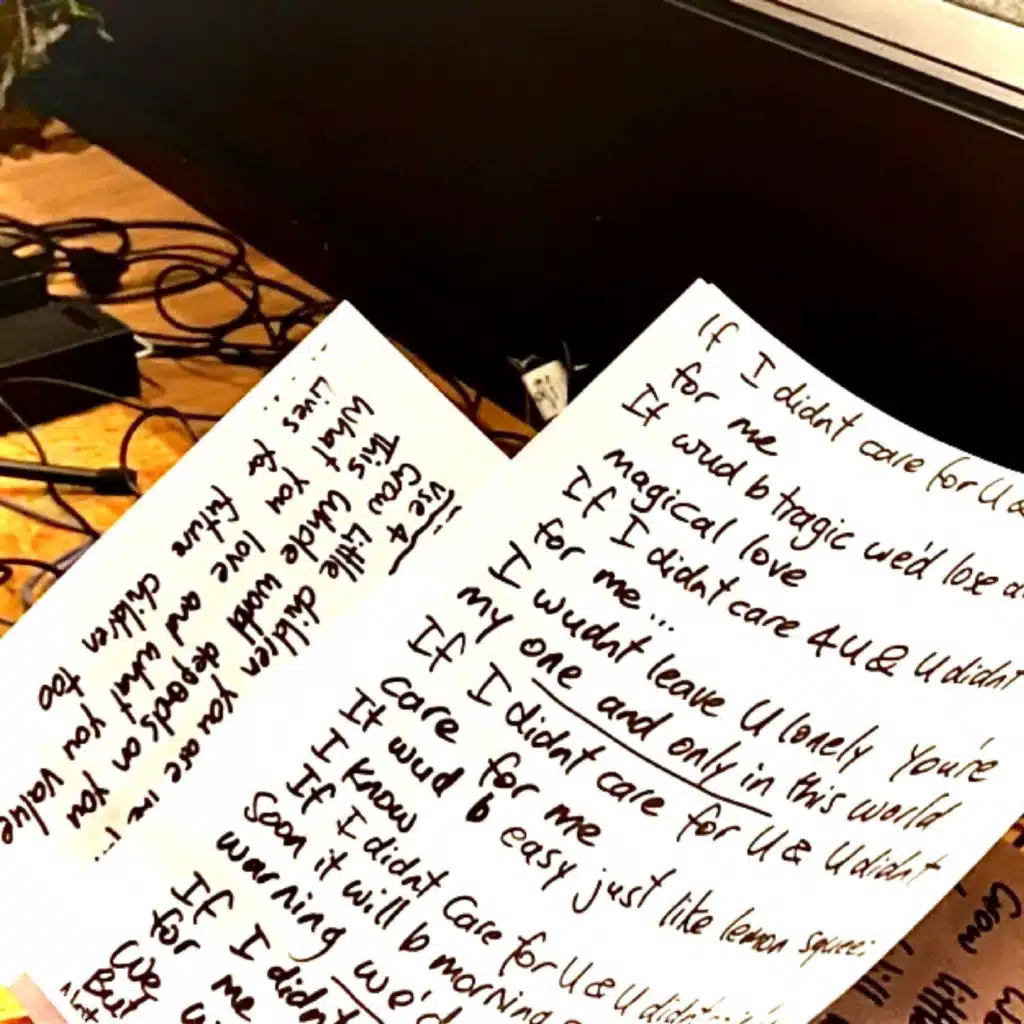 use 4
Grow little children you are me
This whole world depends on you
What you love and what you value
Lives for future children too
If I didnt care for U &
for me
It wud b tragic we'd lose a
magical love
If I didnt care 4 U & U didnt
for me...
I wudnt leave U lonely You're
my one and only in this world
If I didnt care for U & U didnt
care for me
It wud b easy just like lemon
I know
If I didnt care for U & U didnt
Soon it will b morning
warning we'd
If I didnt
for me
We
But
Grow little